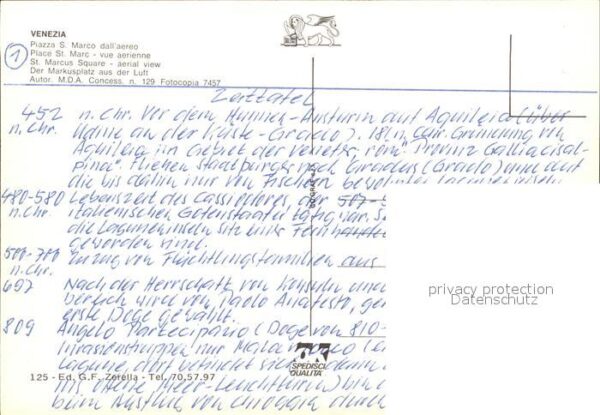 VENEZIA
Piazza S. Marco dall'aereo
Place St. Marc - vue aerienne
St. Marcus Square - aerial view
Der Markusplatz aus der Luft
Autor. M.D.A. Concess. n. 129 Fotocopia 7457
1
Zeittafel
452 n. Chr. Vor dem Hunnen-Ansturm auf Aquileia (über
n. Chr. Udine an der Küste-Grado). 181 n. Chr. Gründung von
Aquileia im Gebiet der Veneter, röm. Provinz Gallia cisal-
pina". Fliehen Stadtbürger nach Gradus (Grado) und auf
die bis dahin nur von Fischern
480-580 Lebenszeit des Cassiodorus, der 507-5
n. Chr. italienischen Gotenstaates tätig war. S
die Laguneninseln sitz einer Fernhandels
geworden sind.
500-700 Einzug von Flüchtlingsfamilien aus
n. Chr.
697 Nach der Herrschaft von Konsuln und
bereich wird von Paolo Anafesto, ge
erste Doge gewählt.
809 Angelo Partecipazio (Doge von 810-
nur Mala
Lagune, dort
Meer-
beim von Chioggia durch
BIOGRAF
privacy protection
Datenschutz
SPEDISCI
QUALITÀ
125 - Ed. G.F. Zerella - Tel. 70.57.97